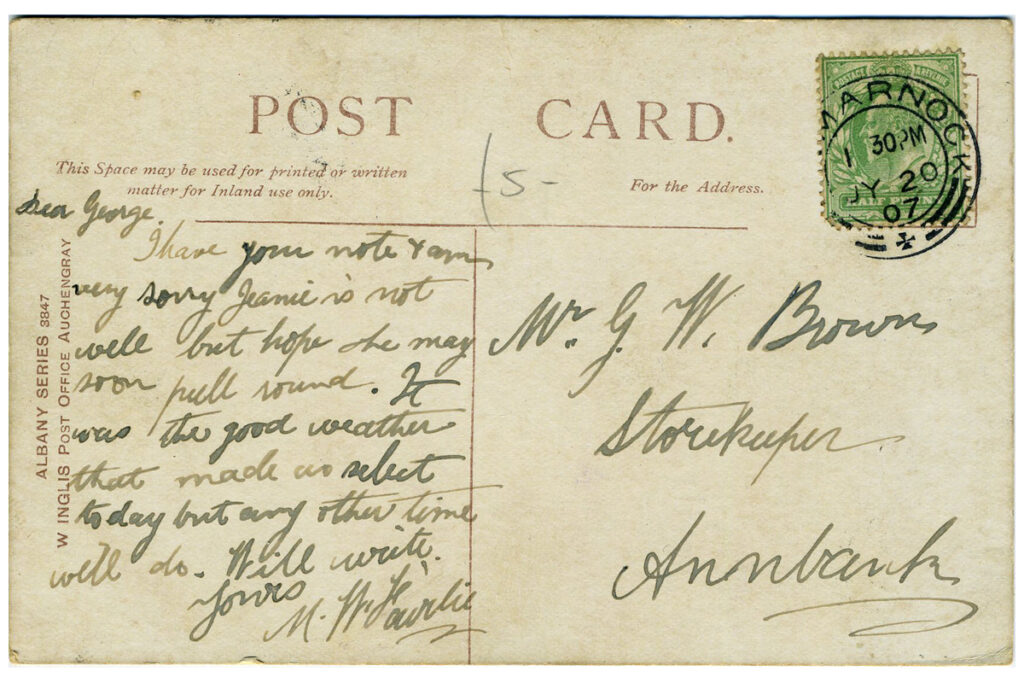 POST CARD.
This Space may be used for printed or written
matter for Inland use only.
For the Address.
-5-
POSTAGE REVENUE
HALF PENNY
MARNOCK
1 30PM
JY 20
07
ALBANY SERIES 3847
W INGLIS POST OFFICE AUCHENGRAY
Dear George.
I have your note & am
very sorry Jeanie is not
well but hope she may
soon pull round. It
was the good weather
that made us select
today but any other time
we'll do. Will write.
Yours
M. W. Fairlie
Mr. G. W. Brown
Storekeeper
Annbank